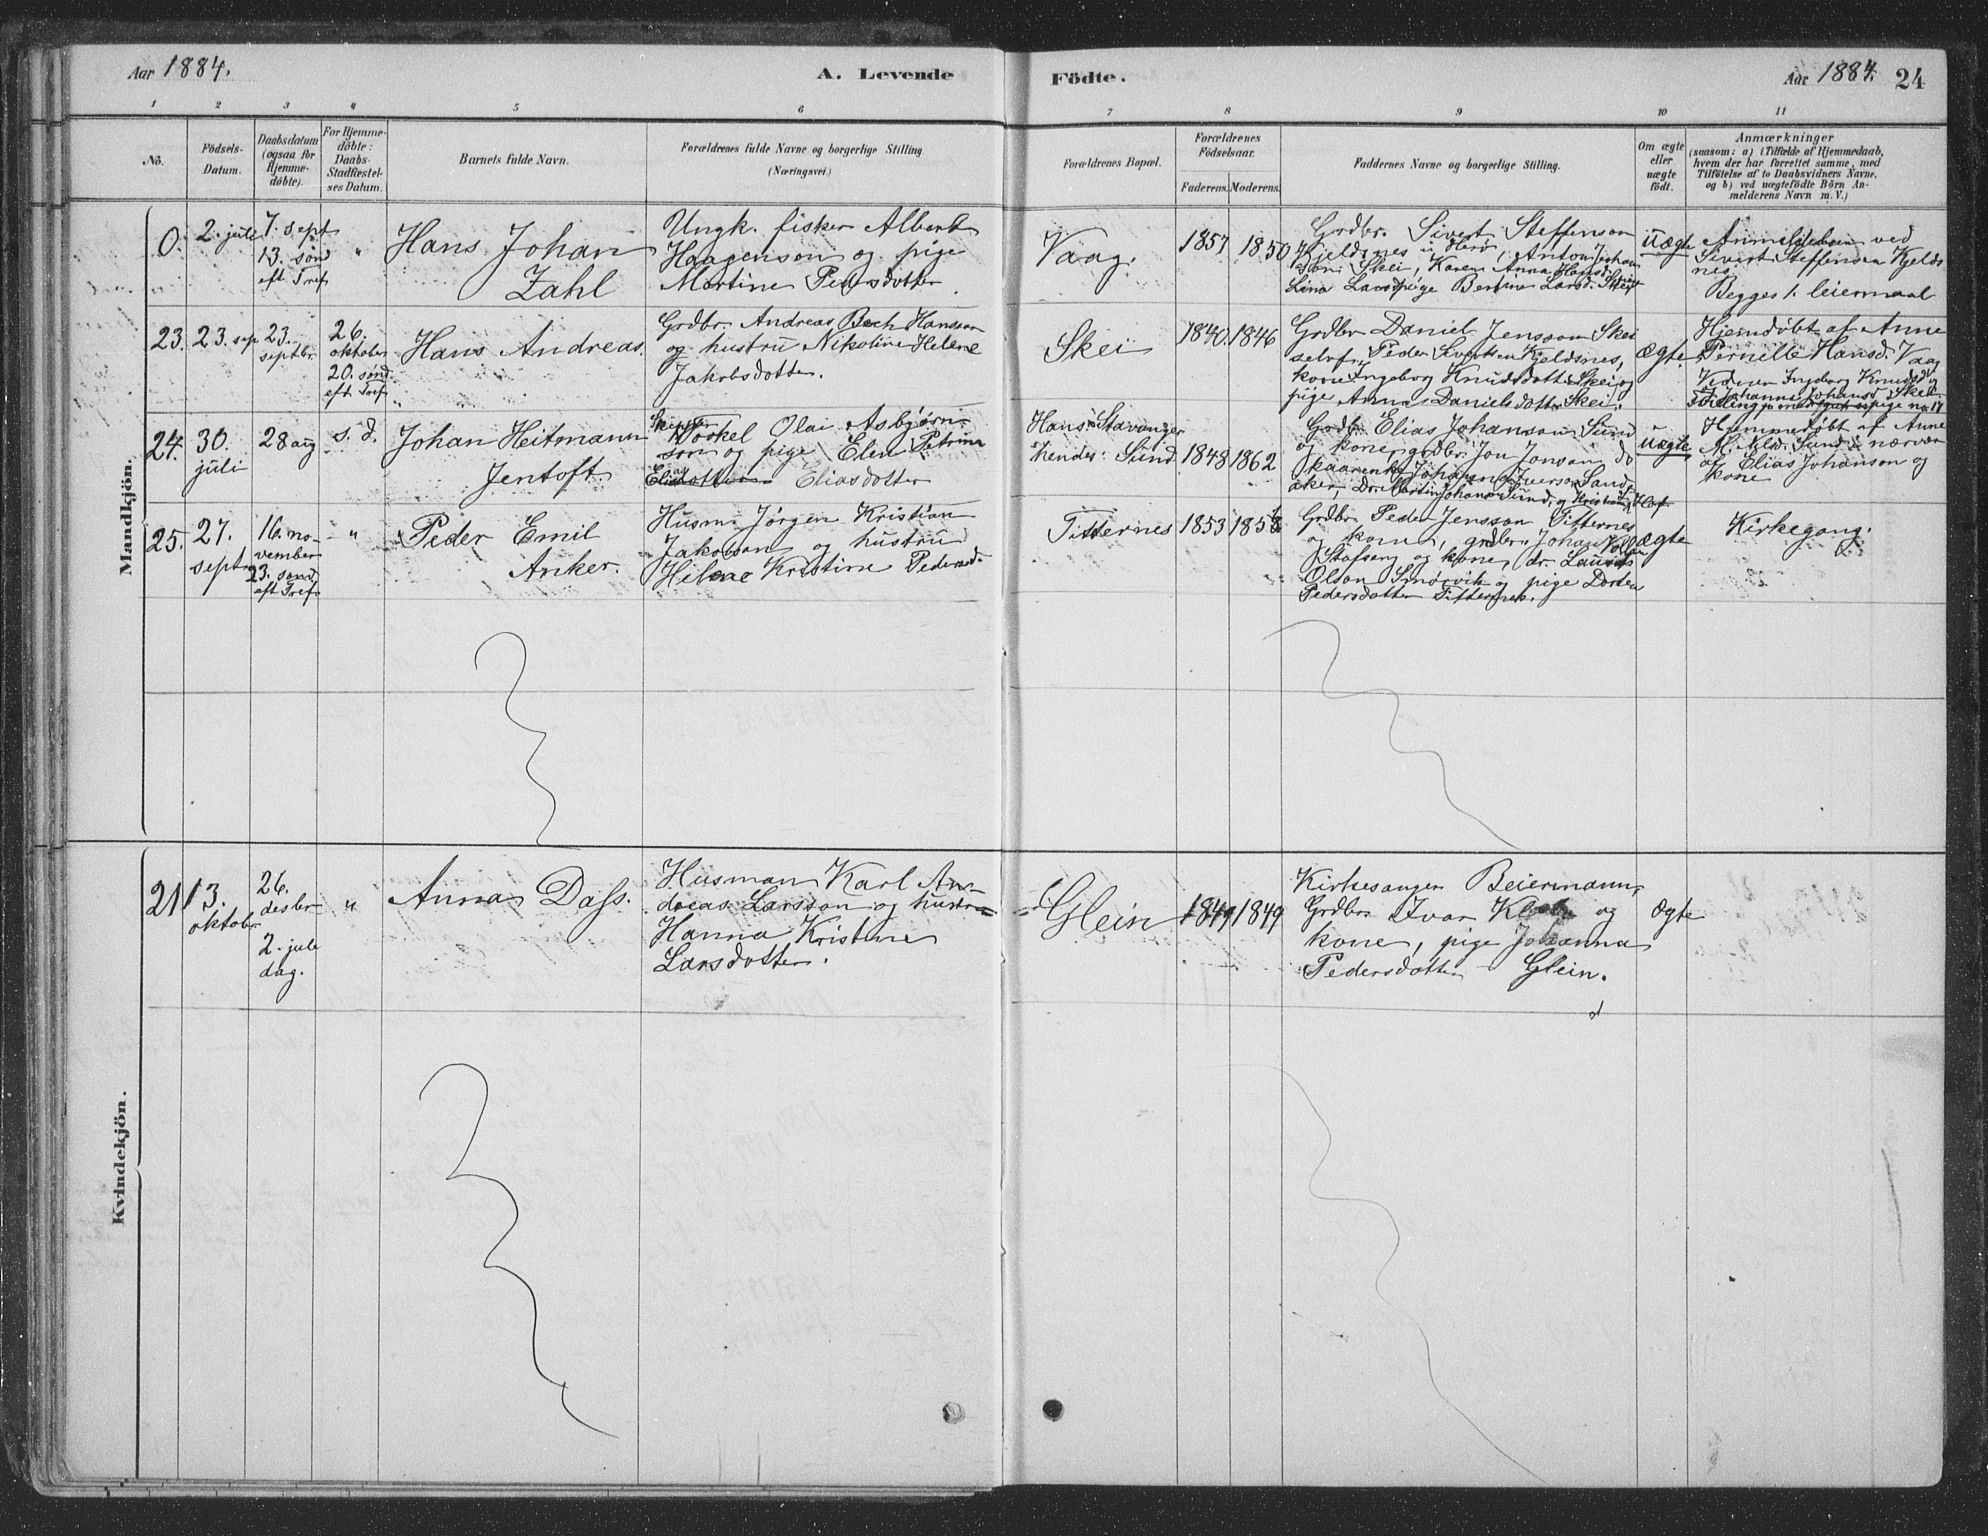 Aar 1884.
A. Levende
Födte.
Aar 1884. 24
1 2 3 4 5 6 7 8 9 10 11
No.
Födsels-
Datum.
Daabsdatum
(ogsaa for
Hjemme-
döbte).
For Hjemme-
döbte:
Daabs-
Stadfæstel-
ses Datum.
Barnets fulde Navn.
Forældrenes fulde Navne og borgerlige Stilling
(Næringsvei.)
Forældrenes Bopæl.
Forældrenes
Födselsaar.
Faderens. Moderens.
Faddernes Navne og borgerlige Stilling.
Om ægte
eller
uægte
födt.
Anmærkninger
(saasom: a) i Tilfælde af Hjemmedaab,
hvem der har forrettet samme, med
Tilföielse af to Daabsvidners Navne,
og b) ved uægtefödte Börn An-
melderens Navn m. V.)
Mandkjön.
0. 2. juli
7. sept
13. sønd
eft Tref
"
Hans Johan
Zahl
Ungk. fisker Albert
Haagenson og pige
Martine Pedersdotter
Vaag.
1857 1850
Grdbr. Sivert Steffenson
Kjeldsnes i Herø, Anton Johan
son Skei, Karen Anna Hansd.
Lina Larsd. pige Larsd. Skei
uægte
Anmeldelsen ved
Sivert Steffensen Kjelds
nes.
Begges 1. leiermaal
23. 23. sep
23.
septbr.
26.
oktober
20. sønd
eft Tref
Hans Andreas.
Grdbr. Andreas Bech Hansson
og hustru Nikoline Helene
Jakobsdotter.
Skei
1840. 1846
Grdbr Daniel Jensson Skei
selvf. Peder Sivertsen Kjeldsnes,
kone Ingeborg Knudsdotter Skei og
pige Anna Danielsdotter Skei.
ægte
Hjemdøbt af Anne
Pernille Hansd. Vaag
Vidner Ingeborg Knudsd. og
Johanna Johansd. Skei
24. 30.
juli
28 aug
s. d.
Johan Heitmann
Jentoft.
Skipper
Torkel Olai Asbjørn-
son og pige Elen Petrina
Eliasdotter
Hans: Stavanger
hendes: Sund
1848 1862
Grdb. Elias Johanson Sund
og kone, grdbr. Jon Jonson do
uægte
Hjemmedøbt af Anne
M. Nlsd. Sund i nærvær
af Elias Johanson og
kone
25. 27.
sept
16. no-
vember
23. sønd
eft Tref
"
Peder Emil
Anker.
Husm. Jørgen Kristian
Jakobson og hustru
Helene Kristine Pedersd.
Titternes
1853 1858
Grdbr. Peder Jensson Titternes
og kone, grdbr. Johan
Stofseng og kone, dr. Laurits
Olson Smørvik og pige Dortea
Pedersdotter Titternes.
ægte
Kirkegang.
Kvindekjön.
21 13.
oktober
26.
desbr
2. jule
dag.
"
Anna Dass.
Husman Karl An-
dreas Larsson og hustru
Hanna Kristine
Larsdotter.
Glein
1849 1849
Kirkesanger Beiermann,
Grdbr. Ivar og
kone, pige Johanna
Pedersdotter Glein.
ægte